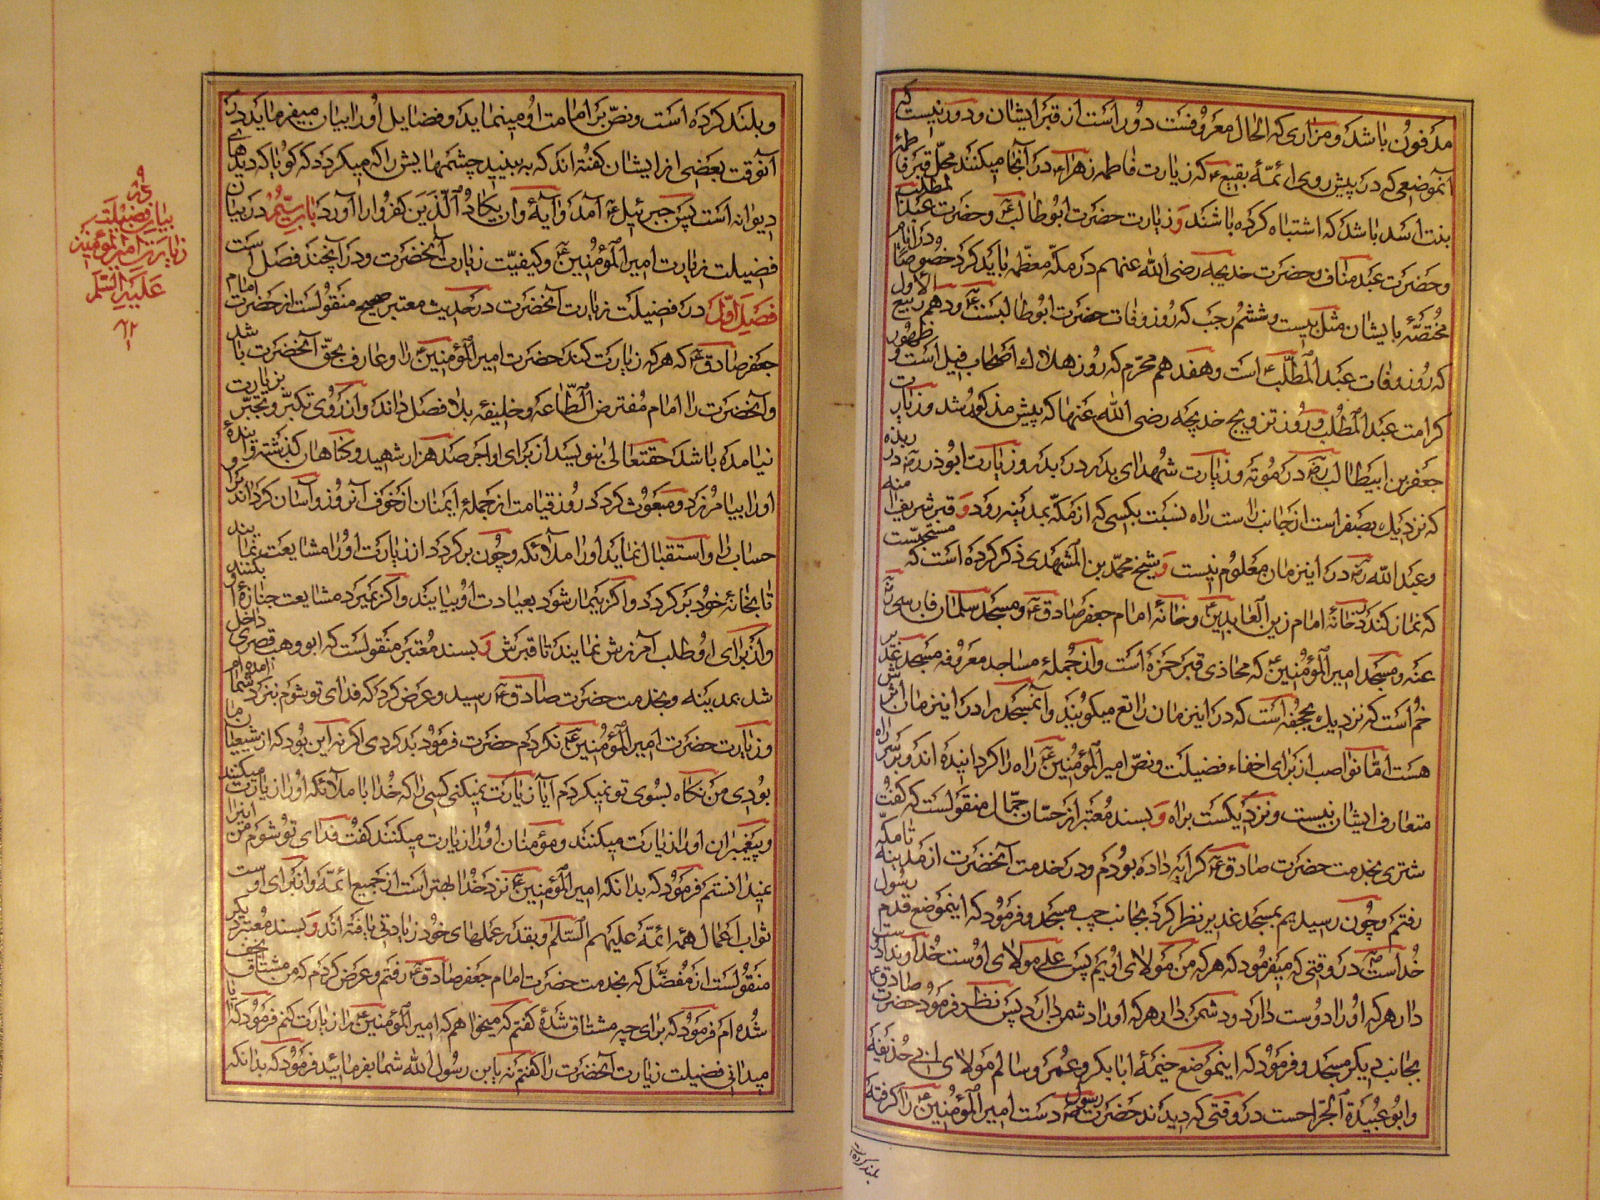 مدفون باشد و مزاری که الحال معروفست دور است از قبر ایشان و دور نیست که
آنموضعی که در پیش روی ائمهٔ بقیع ع که زیارت فاطمه زهراء ع در آنجا میکنند محل قبر فاطمه
بنت اسد باشد که اشتباه کرده باشند و زیارت حضرت ابوطالب ع و حضرت عبدالمطلب
و حضرت عبد مناف و حضرت خدیجه رضی الله عنهم در مکهٔ معظمه باید کرد خصوصا در ایام
مختصهٔ بایشان مثل بیست و ششم رجب که روز وفات حضرت ابوطالبست ع و دهم ربیع الاول
که روز وفات عبدالمطلب است و هفدهم محرم که روز هلاک اصحاب فیل است و ظهور
کرامت عبدالمطلب و روز تزویج خدیجه رضی الله عنها که پیش مذکور شد و زیارت
جعفر بن ابیطالب ره در موته و زیارت شهدای بدر در بدر و زیارت ابوذر ره در ربذه
که نزدیک بصفر است از جانب راست راه نسبت بکسی که از مکه بمدینه رود و قبر شریف
و عبدالله ره در اینزمان معلوم نیست و شیخ محمد بن المشهدی ذکر کرده است که مستحبست
که نماز کنند در خانهٔ امام زین العابدین ع و خانهٔ امام جعفر صادق ع و مسجد سلمان فارسی رضی
عنه و مسجد امیرالمؤمنین ع که محاذی قبر حمزه است و از جملهٔ مساجد معروفه مسجد غدیر
خم است که نزدیک بجحفه است که در اینزمان رابع میکویند و آنمسجد را در اینزمان
هست اما نواصب از برای اخفاء فضیلت و نص امیرالمؤمنین ع راه را کردانیده اند و بر سر راه
متعارف ایشان نیست و نزدیکست براه و بسند معتبر از حسان جمال منقولست که گفت
شتری بخدمت حضرت صادق ع کرایه داده بودم و در خدمت آنحضرت از مدینه تا مکه
رفتم و چون رسیدیم بمسجد غدیر نظر کرد بجانب چپ مسجد و فرمود که اینموضع قدم رسول
خداست ص در وقتی که میفرمود که هر که من مولای اویم پس علی مولای اوست خداوندا دوست
دار هر که اورا دوست دارد و دشمن دار هر که اورا دشمن دارد پس نظر فرمود حضرت صادق ع
بجانب دیکر مسجد و فرمود که اینموضع خیمهٔ ابابکر و عمر و سالم مولای ابی حذیفه
و ابوعبیدة الجراحست در وقتی که دیدند حضرت رسول ص دست امیرالمؤمنین ع را گرفته
بلند کرده است
و بلند کرده است و نص بر امامت او مینماید و فضایل اورا بیان میفرماید در
آنوقت بعضی از ایشان گفته اند که به بینید چشمهایش را که میکردد که کویا که دیدهای
دیوانه است پس جبرئیل ع آمد و آیهٔ و ان یکاد الذین کفروا را آورد باب سیم در بیان
فضیلت زیارت امیرالمؤمنین ع و کیفیت زیارت آنحضرت و در آنچند فصل است
فصل اول در فضیلت زیارت آنحضرت در حدیث معتبر صحیح منقولست از حضرت امام
جعفر صادق ع که هر که زیارت کند حضرت امیرالمؤمنین ع را و عارف بحق آنحضرت باشد
و آنحضرت را امام مفترض الطاعه و خلیفهٔ بلا فصل داند و از روی تکبر و تجبر بزیارت
نیامده باشد حقتعالی بنویسد از برای او اجر صد هزار شهید و کناهان کذشته و آیندهٔ
اورا بیامرزد و مبعوث کردد روز قیامت از جملهٔ ایمنان از خوف آنروز و آسان کرداند برا
حساب را و استقبال نمایند اورا ملائکه و چون برکردد از زیارت اورا مشایعت نمایند
تا بخانهٔ خود برکردد و اکر بیمار شود بعیادت او بیایند و اکر بمیرد مشایعت جنازهٔ او بکنند
و از برای او طلب آمرزش نمایند تا قبرش و بسند معتبر منقولست که ابو وهب قصری داخل
شد بمدینه و بخدمت حضرت صادق ع رسید و عرض کرد که فدای تو شوم نزد شما آمده ام
و زیارت حضرت امیرالمؤمنین ع نکردم حضرت فرمود بد کردی اکر نه این بود که از شیعیان ما
بودی من نکاه بسوی تو نمیکردم آیا زیارت نمیکنی کسی را که خدا با ملائکه اورا زیارت میکنند
و پیغمبران اورا زیارت میکنند و مؤمنان اورا زیارت میکنند گفت فدای تو شوم من اینرا
نمیدانستم فرمود که بدانکه امیرالمؤمنین ع نزد خدا بهتر است از جمیع ائمه و از برای اوست
ثواب اعمال همهٔ ائمه علیهم السلام و بقدر عملهای خود زیادتی یافته اند و بسند معتبر دیکر
منقولست از مفضل که بخدمت حضرت امام جعفر صادق ع رفتم و عرض کردم که من مشتاق نجف
شده ام فرمود که برای چه مشتاق شدهٔ گفتم که میخواهم که امیرالمؤمنین ع را زیارت کنم فرمود که آیا
میدانی فضیلت زیارت آنحضرت را گفتم نه یابن رسول الله شما بفرمائید فرمود که بدانکه
بیان فضیلت
زیارت امیرالمؤمنین
علیه السلام